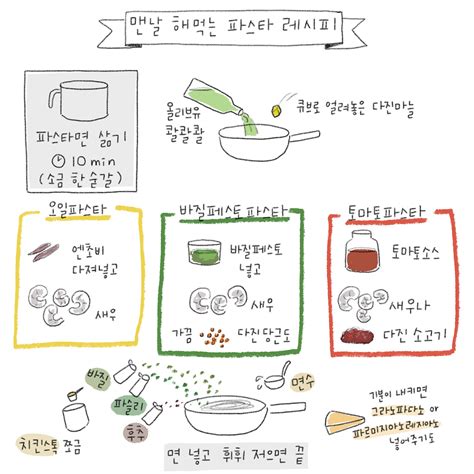 맨날 해먹는 파스타 레시피
파스타면 삶기
10 min
(소금 한 숟갈)
올리브유
콸콸콸
큐브로 얼려놓은 다진마늘
오일파스타
엔초비
다져넣고
새우
바질페스토파스타
바질페스토
넣고
새우
가끔 다진당근도
토마토파스타
토마토소스
새우나
다진 소고기
바질
파슬리
후추
치킨스톡 쪼금
면수
면 넣고 휘휘 저으면 끝
기분이 내키면
그라노파다노 or
파르미지아노레지아노
넣어주기도